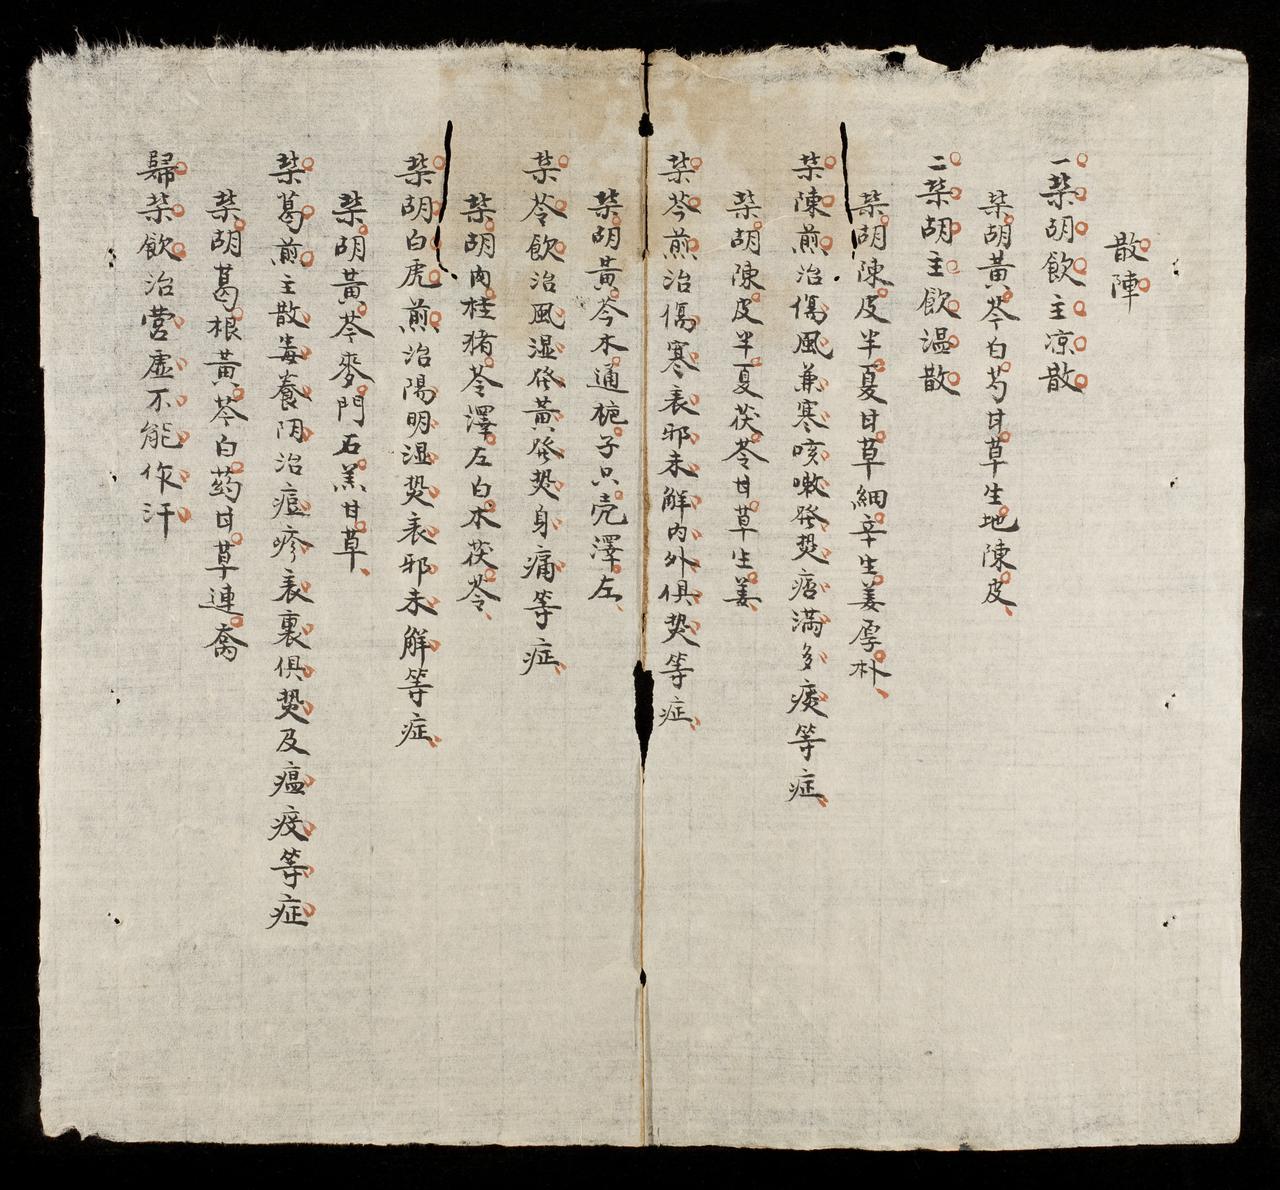 散陣
一柴胡飲主凉散
柴胡黃芩白芍甘草生地陳皮
二柴胡主飲温散
柴胡陳皮半夏甘草細辛生姜厚朴
柴陳煎治傷風兼寒咳嗽發熱痞滿多痰等症
柴胡陳皮半夏茯苓甘草生姜
柴芩煎治傷寒表邪未解內外俱熱等症
柴胡黃芩木通梔子只壳澤左
柴苓飲治風湿發黃發熱身痛等症
柴胡肉桂猪苓澤左白朮茯苓
柴胡白虎煎治陽明湿熱表邪未解等症
柴胡黃芩麥門石羔甘草
柴葛煎主散毒養阴治瘟疹表裏俱熱及瘟疫等症
柴胡葛根黃芩白葯甘草連喬
歸柴飲治营虛不能作汗